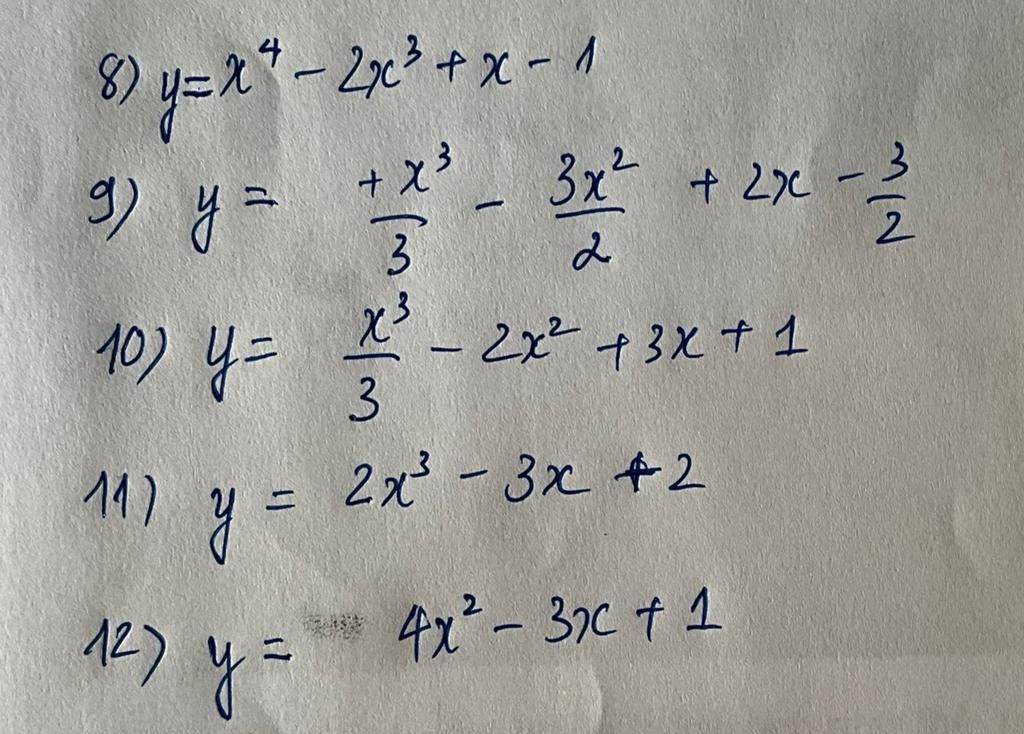 8) y = x⁴ - 2x³ + x - 1
9) y = +x³/3 - 3x²/2 + 2x - 3/2
10) y = x³/3 - 2x² + 3x + 1
11) y = 2x³ - 3x + 2
12) y = 4x² - 3x + 1